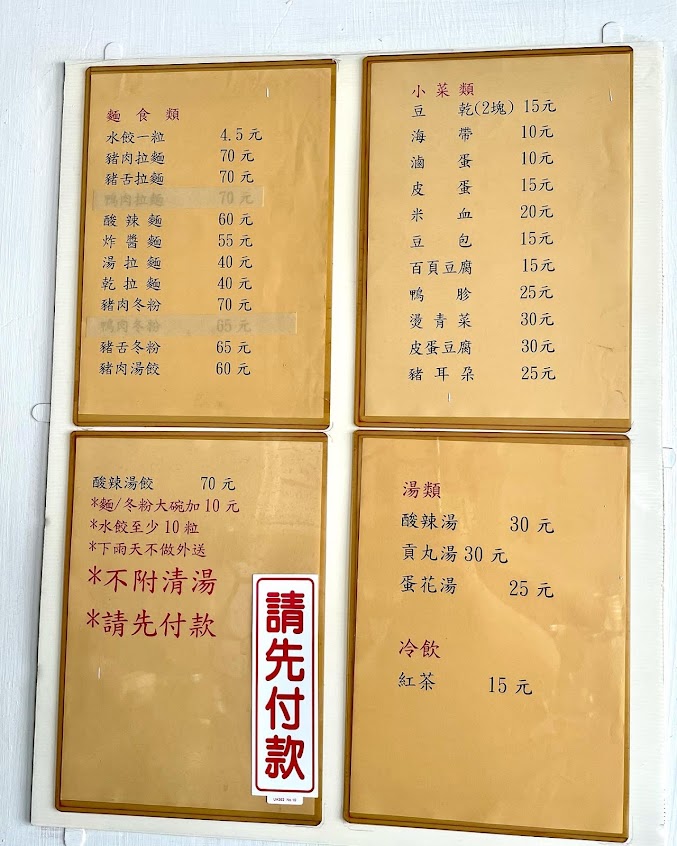 麵食類
水餃一粒 4.5元
豬肉拉麵 70元
豬舌拉麵 70元
鴨肉拉麵 70元
酸辣麵 60元
炸醬麵 55元
湯拉麵 40元
乾拉麵 40元
豬肉冬粉 70元
鴨肉冬粉 65元
豬舌冬粉 65元
豬肉湯餃 60元
小菜類
豆乾(2塊) 15元
海帶 10元
滷蛋 10元
皮蛋 15元
米血 20元
豆包 15元
百頁豆腐 15元
鴨胗 25元
燙青菜 30元
皮蛋豆腐 30元
豬耳朵 25元
酸辣湯餃 70元
*麵/冬粉大碗加10元
*水餃至少10粒
*下雨天不做外送
*不附清湯
*請先付款
請先付款
湯類
酸辣湯 30元
貢丸湯30元
蛋花湯 25元
冷飲
紅茶 15元